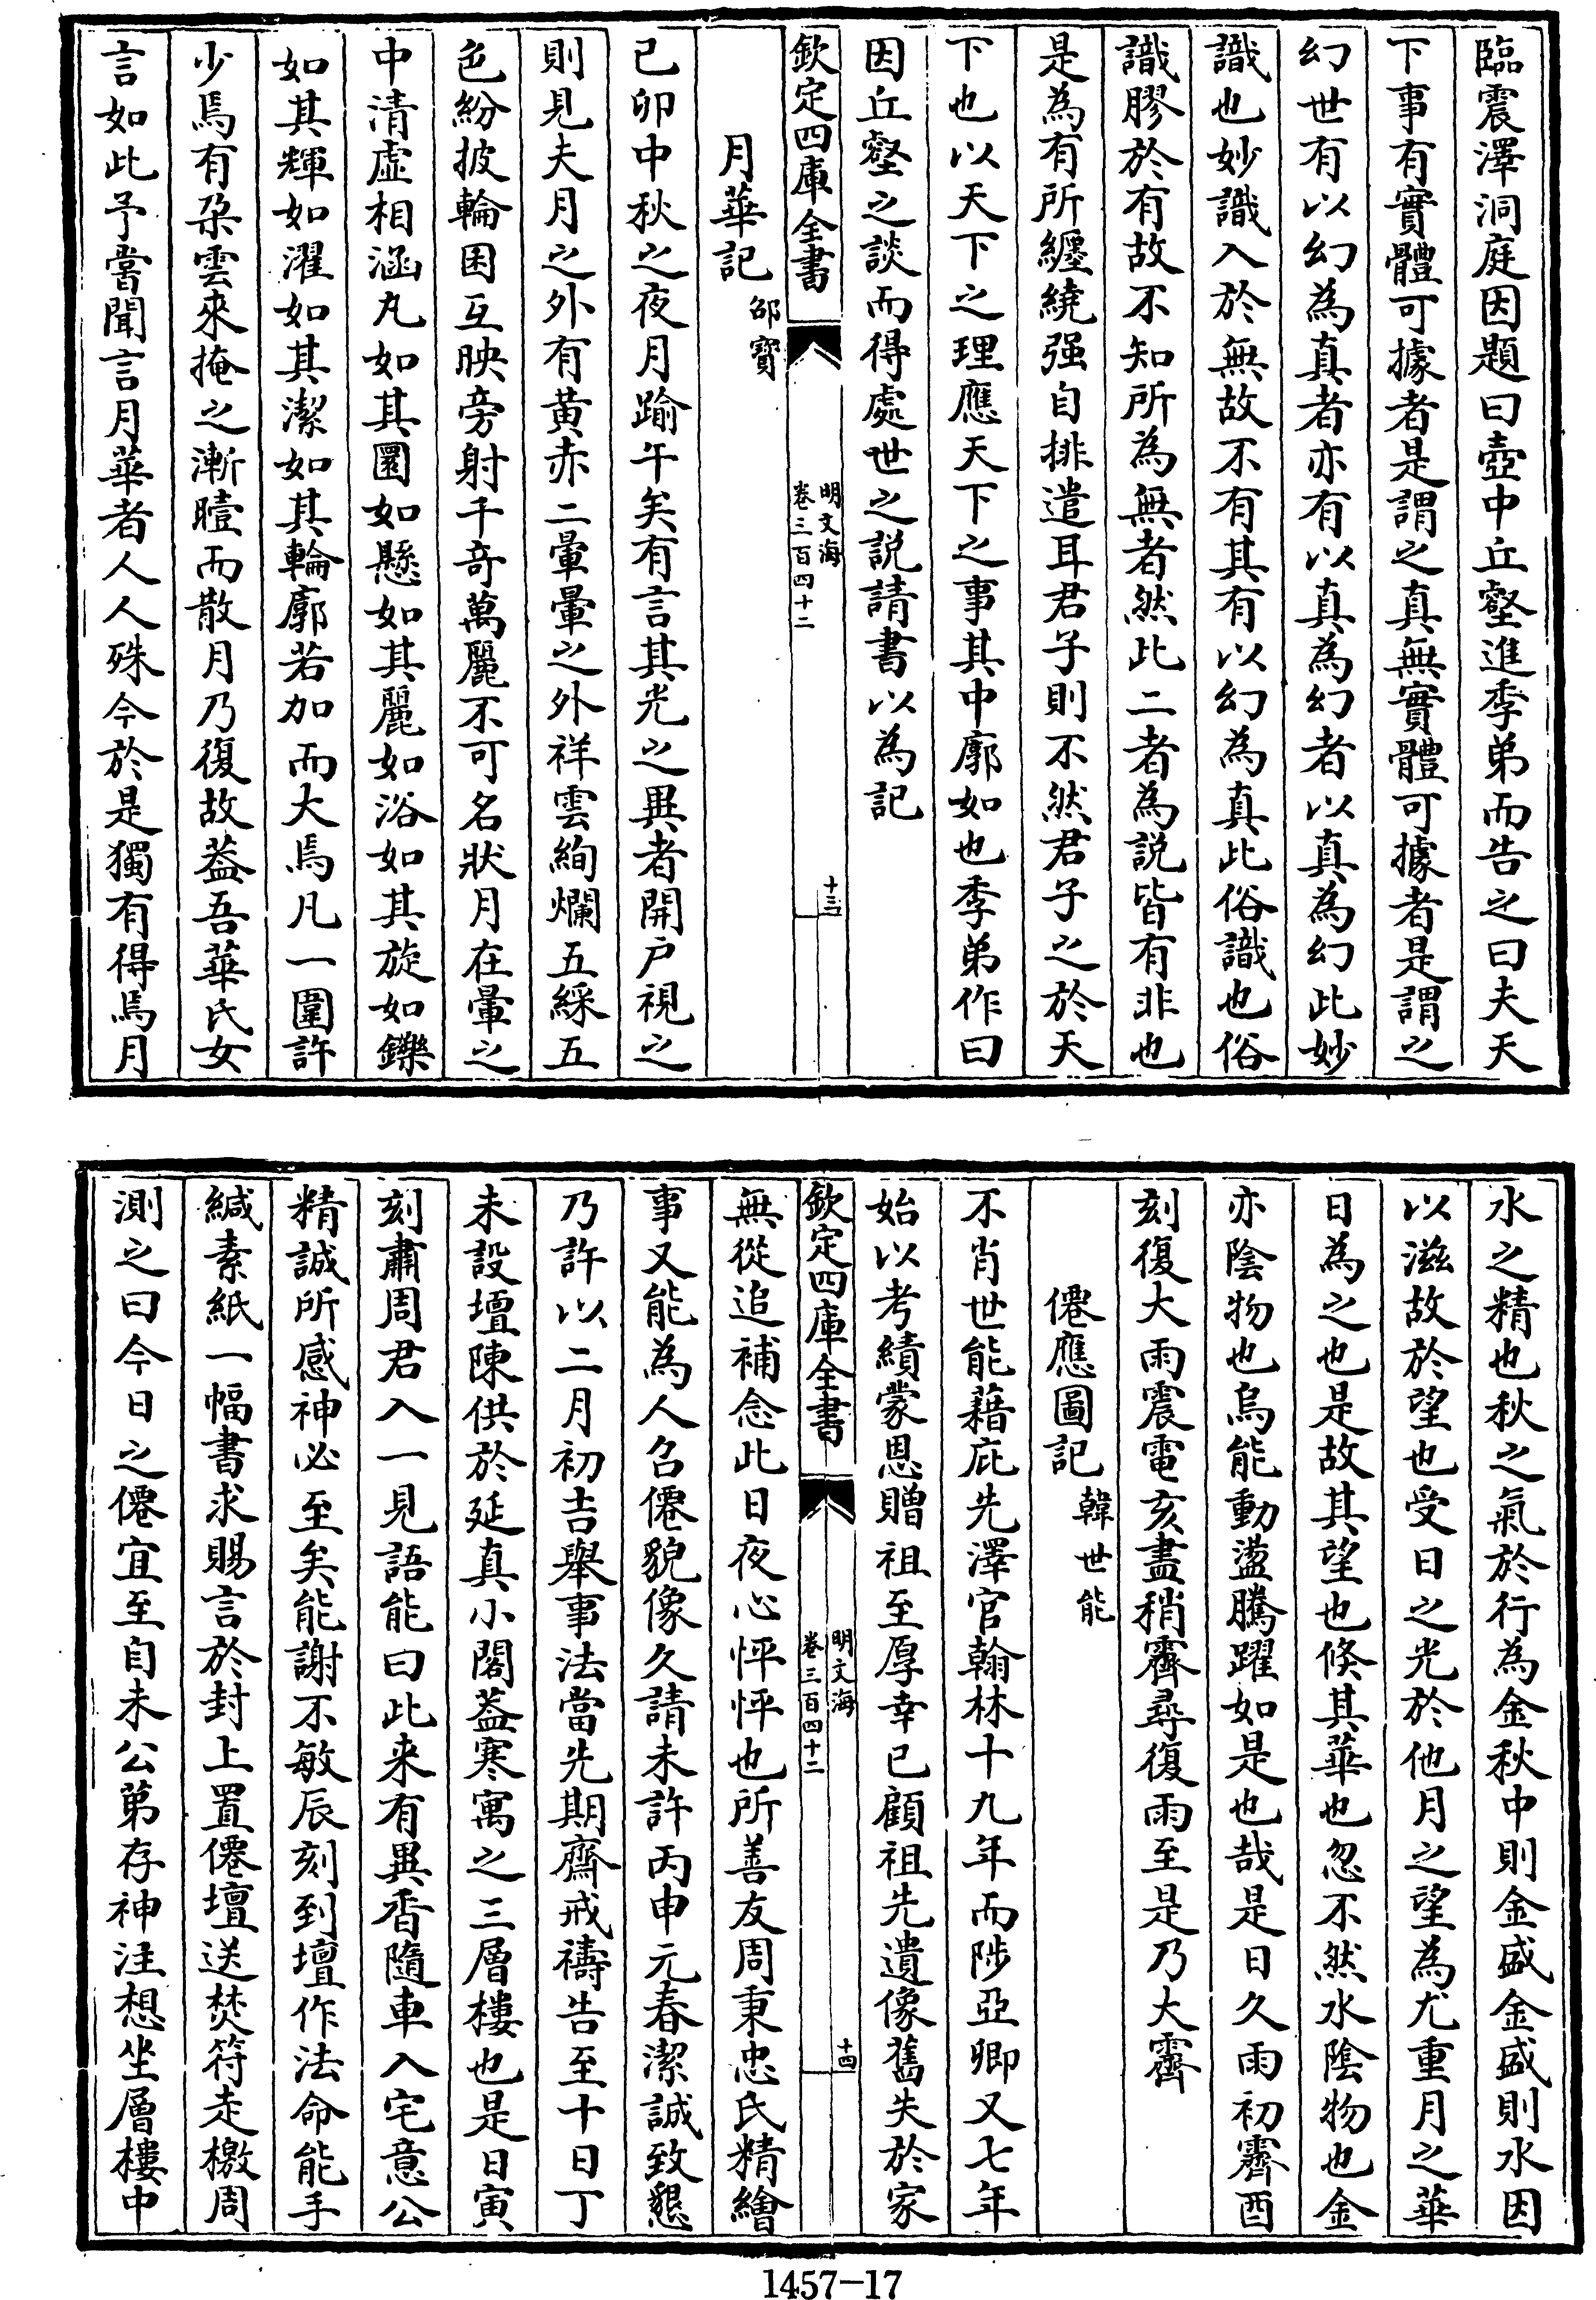 臨震澤洞庭因題曰壺中丘壑進季弟而告之曰夫天
下事有實體可據者是謂之真無實體可據者是謂之
幻世有以幻為真者亦有以真為幻者以真為幻此妙
識也妙識入於無故不有其有以幻為真此俗識也俗
識膠於有故不知所為無者然此二者為説皆有非也
是為有所纏繞强自排遣耳君子則不然君子之於天
下也以天下之理應天下之事其中廓如也季弟作曰
因丘壑之談而得處世之説請書以為記
欽定四庫全書
明文海
卷三百四十二
十三
月華記 邵寳
己卯中秋之夜月踰午矣有言其光之異者開户視之
則見夫月之外有黄赤二暈暈之外祥雲絢爛五綵五
色紛披輪囷互映旁射千奇萬麗不可名狀月在暈之
中清虚相涵凡如其圜如懸如其麗如浴如其旋如鑠
如其輝如濯如其潔如其輪廓若加而大焉凡一圍許
少焉有朶雲來掩之漸曀而散月乃復故葢吾華氏女
言如此予嘗聞言月華者人人殊今於是獨有得焉月
水之精也秋之氣於行為金秋中則金盛金盛則水因
以滋故於望也受日之光於他月之望為尤重月之華
日為之也是故其望也倐其華也忽不然水陰物也金
亦陰物也烏能動盪騰躍如是也哉是日久雨初霽酉
刻復大雨震電亥盡稍霽尋復雨至是乃大霽
僊應圖記 韓世能
不肖世能藉庇先澤官翰林十九年而陟亞卿又七年
始以考績蒙恩贈祖至厚幸已顧祖先遺像舊失於家
欽定四庫全書
明文海
卷三百四十二
十四
無從追補念此日夜心怦怦也所善友周秉忠氏精繪
事又能為人召僊貌像久請未許丙申元春潔誠致懇
乃許以二月初吉舉事法當先期齋戒禱告至十日丁
未設壇陳供於延真小閣葢寒寓之三層樓也是日寅
刻肅周君入一見語能曰此来有異香隨車入宅意公
精誠所感神必至矣能謝不敏辰刻到壇作法命能手
緘素紙一幅書求賜言於封上置僊壇送焚符走檄周
測之曰今日之僊宜至自未公第存神注想坐層樓中
1457-17